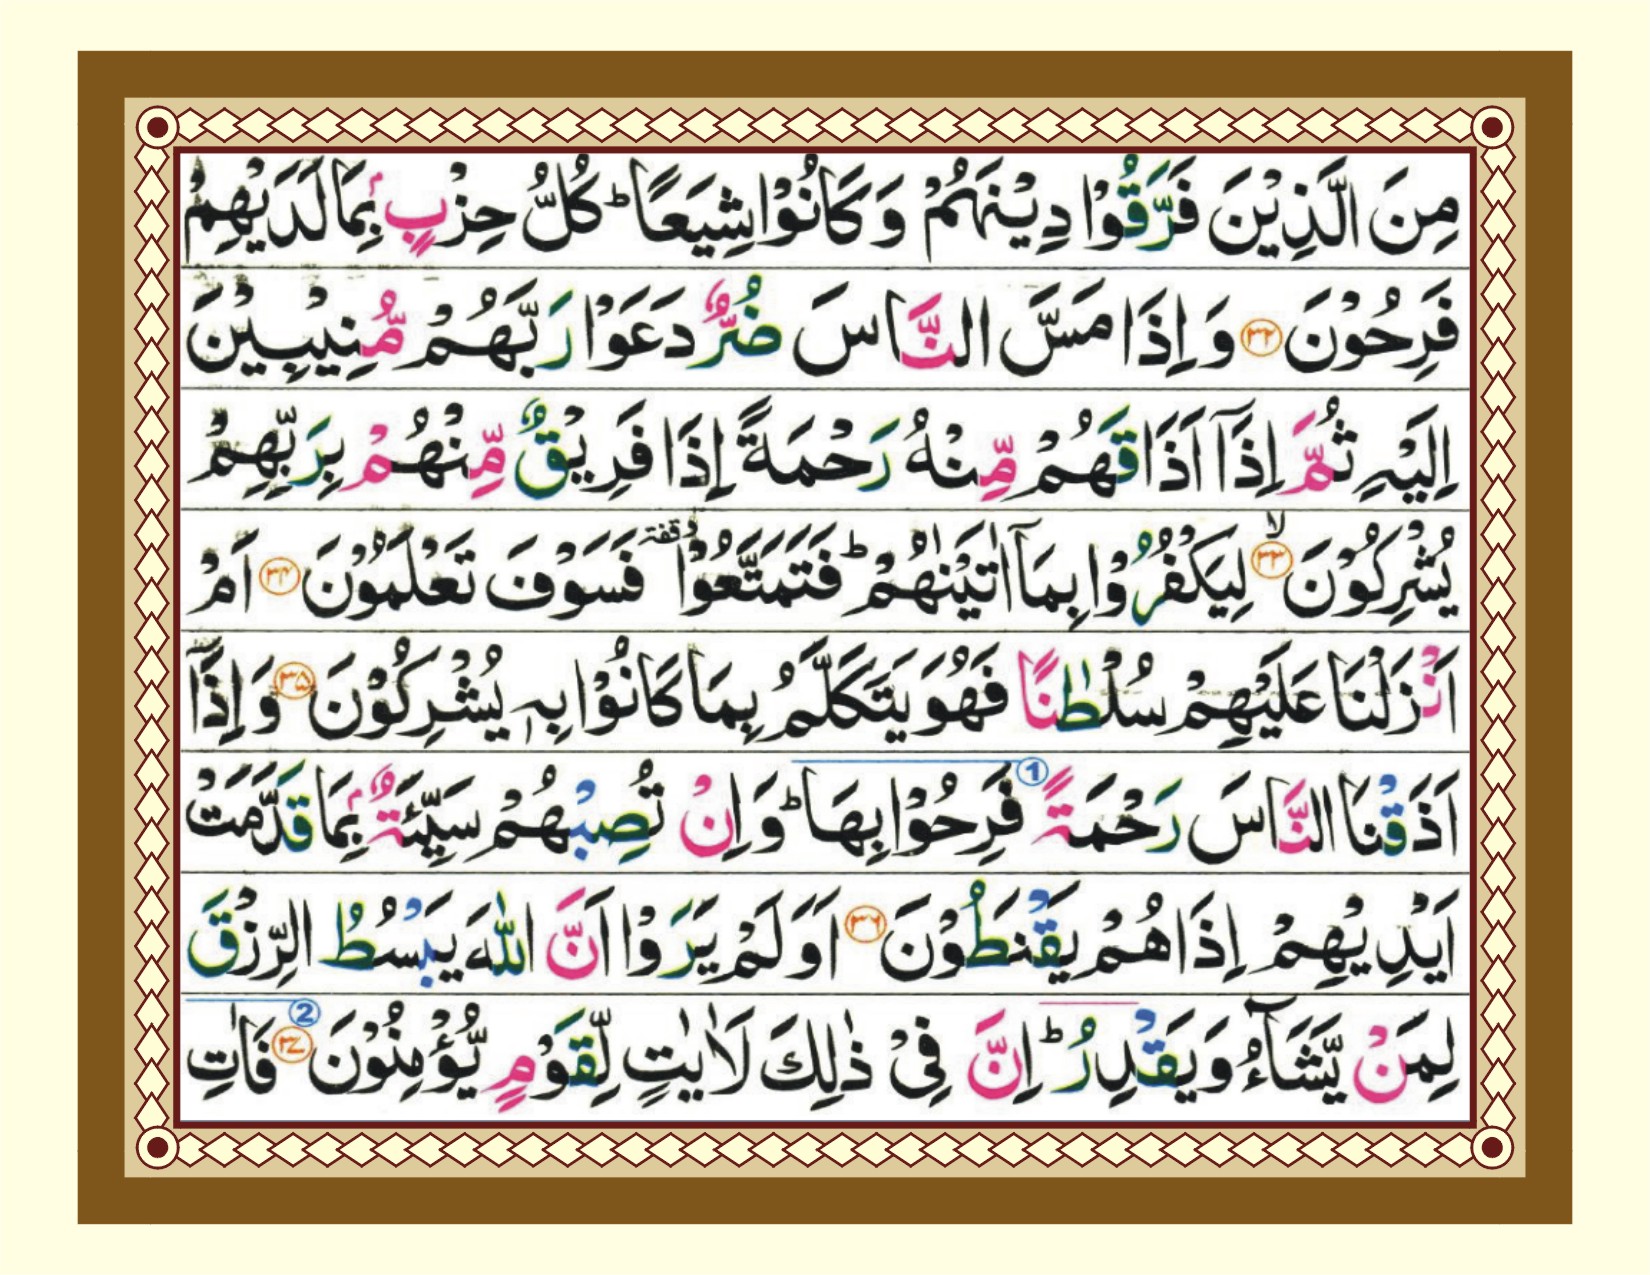 مِنَ الَّذِيْنَ فَرَّقُوْا دِيْنَهُمْ وَ كَانُوْا شِيَعًا ؕ كُلُّ حِزْبٍۭ بِمَا لَدَيْهِمْ
فَرِحُوْنَ ﴿۳۲﴾ وَ اِذَا مَسَّ النَّاسَ ضُرٌّ دَعَوْا رَبَّهُمْ مُّنِيْبِيْنَ
اِلَيْهِ ثُمَّ اِذَاۤ اَذَاقَهُمْ مِّنْهُ رَحْمَةً اِذَا فَرِيْقٌ مِّنْهُمْ بِرَبِّهِمْ
يُشْرِكُوْنَ ۙ﴿۳۳﴾ لِيَكْفُرُوْا بِمَاۤ اٰتَيْنٰهُمْ ؕ فَتَمَتَّعُوْا ٝوقفة فَسَوْفَ تَعْلَمُوْنَ ﴿۳۴﴾ اَمْ
اَنْزَلْنَا عَلَيْهِمْ سُلْطٰنًا فَهُوَ يَتَكَلَّمُ بِمَا كَانُوْا بِهٖ يُشْرِكُوْنَ ﴿۳۵﴾ وَ اِذَاۤ
اَذَقْنَا النَّاسَ رَحْمَةً ① فَرِحُوْا بِهَا ؕ وَ اِنْ تُصِبْهُمْ سَيِّئَةٌۢ بِمَا قَدَّمَتْ
اَيْدِيْهِمْ اِذَا هُمْ يَقْنَطُوْنَ ﴿۳۶﴾ اَوَ لَمْ يَرَوْا اَنَّ اللّٰهَ يَبْسُطُ الرِّزْقَ
لِمَنْ يَّشَآءُ وَ يَقْدِرُ ؕ اِنَّ فِيْ ذٰلِكَ لَاٰيٰتٍ لِّقَوْمٍ يُّؤْمِنُوْنَ ﴿۳۷﴾ ② فَاٰتِ